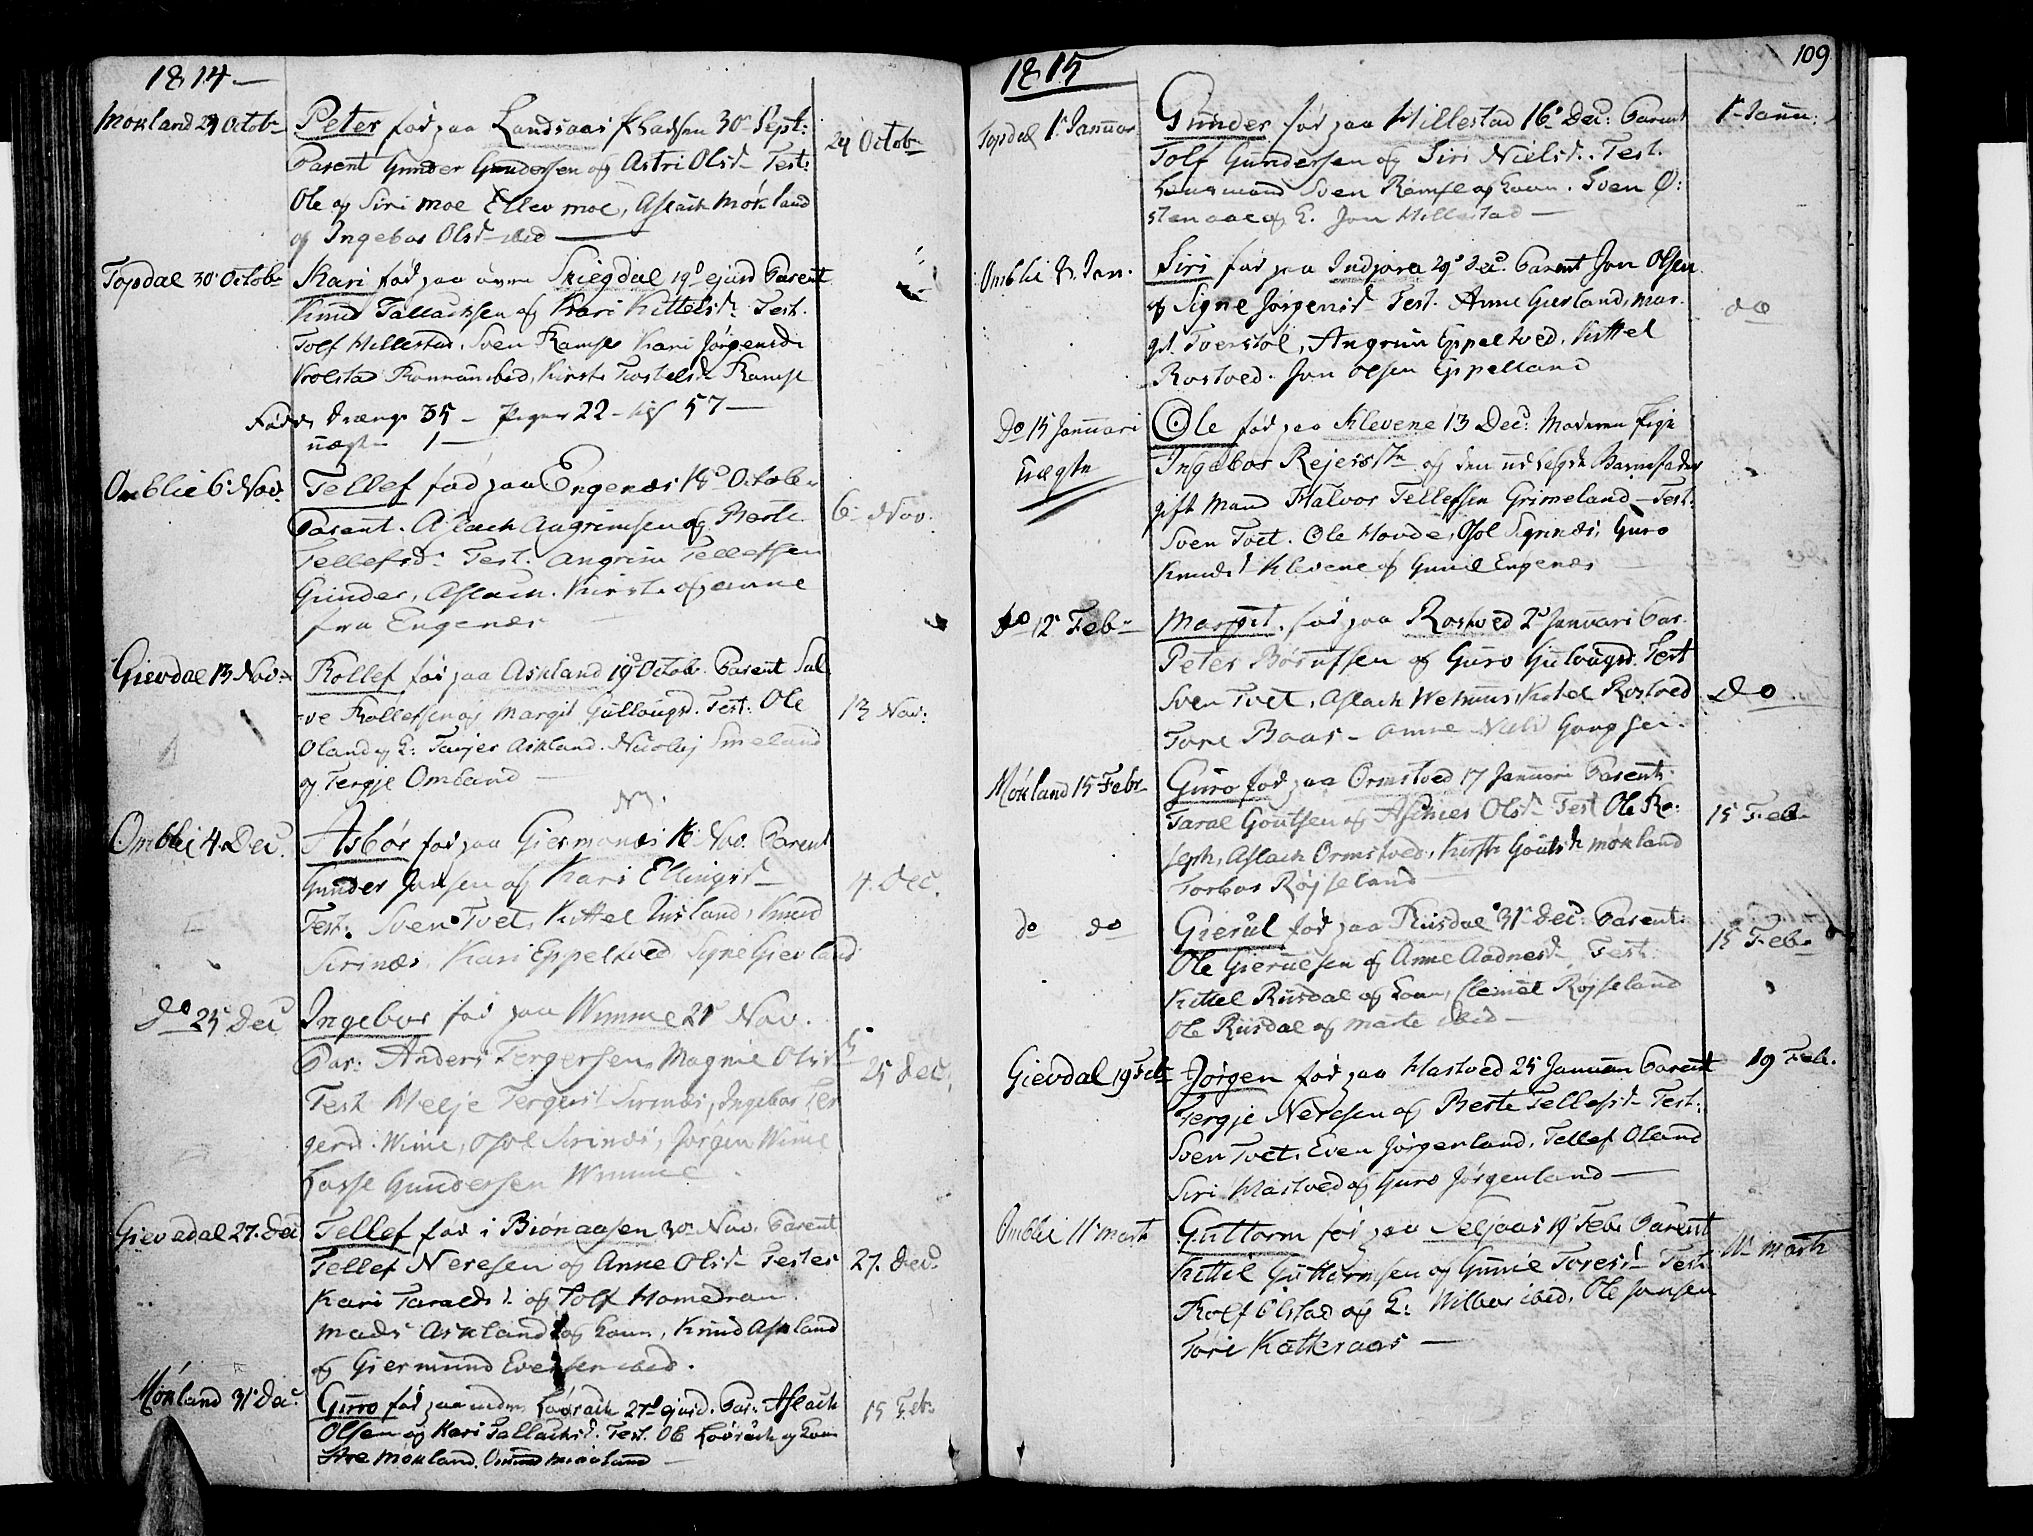 1814
Mókland 24 Octobr
Peter fód paa Landsaas 30 Sept:
Parent Gunder Gundersen og Astri Olsd Test:
Ole og Siri Moe Ellev moe, Aslach Mókland
og Ingebor Olsd ibid
24 Octobr
Topdal 30 Octobr
Kari fód paa Skiegdal 19d ejusd Parent
Knud Tallachsen og Kari Kittelsd: Test.
Tolf Hillestad, Sven Ramse Kari Jórgensd:
ibid, Ramse
Fódde Drænge 35 – Piger 22 – 57 –
uægt 1 –
Omblie 6 Nov.
Tellef fód paa Engenæs 18d October
Parent. Aslach Angrimsen og Berte
Tellefsd: Test. Angrim Tellefsen
Gunder, Aslach. Kirste og Anne
fra Engenes
6 Nov.
Gievdal 13 Nov.
Rollef fód paa Askland 19d Octob. Parent Sal
-ve Rollefsen og Margit Gullougsd. Test: Ole
Oland og K: Tarjer Askland. Nicolaj Smeland
og Tergje Omland
13 Nov:
Omblie 4. Dec.
Asbór fód paa Giermonæs Nov. Parent
Gunder Jansen og Kari Ellingsd
Test. Sven Tvet, Kittel Uusland, Knud
Sirinæs, Kari Eppeltved Signe Gievland
4. Dec.
do 25 Dec
Ingebor fód paa Wimme 21 Nov.
Par: Anders Tergersen, Magnil Olsd
Test Helje Tergersd Sirinæs, Ingebor Ter
gersd. Wime, Osol Sirinæs, Jórgen Wime
Lasse Gundersen Wimme
25 Dec.
Gievedal 27. Dec
Tellef fód i Biónaasen 30 Nov. Parent
Tellef Neresen og Anne Olsd Testes
Kari Taraldsd. og Tolf Homedrom
Mads Askland og Kone, Knud Askland
og Giermund Evensen ibid.
27. Dec.
Mókland 31 Dec.
Guro fód paa neder 27d ejusd. Par: Aslach
Olsen og Kari Tallachsd. Test. Ole og Kone
Mókland. Mókland
15 Feb.
1815
109
Topdal 1. Januar
Gunder fód paa Hillestad 16 Dec: Parent
Tolf Gundersen og Siri Nielsd. Test.
Lensmand Sven Ramse og Kone. Sven Ó:
stenaae og K. Jon Hillestad
1 Janu:
Omblie 8. Jan.
Siri fód paa Indjore 29 Dec. Parent Jon Olsen
og Signe Jórgensd Test. Anne Gierland, Mar-
git Tverstól, Angrim Eppeltved, Kittel
Rostved. Jon Olsen Eppelland
do
Do 15 Januari
Uægte
Ole fód paa Klevene 13 Dec: Moderen Pige
Ingebor Rejersd og den udlagde Barnefader
gift Mand Halvor Tellefsen Grimeland – Test.
Sven Tvet. Ole Hovde, Osol Sigrinæs, Guro
Knudsd Klevene og Gunild Engenæs
Do 12 Feb
Margit. fód paa Rostved 2 Januari Par.
Peter Bórulfsen og Guro Gulougsd. Test
Sven Tvet, Aslach Wehuus, Kittel Rostved
Tore Baas – Anne Nielsd Gangsei
do
Mókland 15 Febr
Guro fód paa Ormstved 17 Januari Parent:
Taral Goutsen og Aschier Olsd Test Ole Ro:
seph, Aslach Ormstved, Kirsti Goutsd Mókland
Torbor Rójseland
15 Feb.
do do
Gierul fód paa Riisdal 31 Dec. Parent:
Ole Gierulsen og Anne Aadnesd. Test:
Kittel Riisdal og Kone, Clemet Rójseland
Ole Riisdal og Marte ibid
15 Feb.
Gievdal 19 Feb
Jórgen fód paa Hastved 25 Januari Parent
Tergje Neresen og Berte Tellefsd Test:
Sven Tvet, Even Jórgenland, Tellef Oland
Siri Hastved og Guro Jórgenland
19 Feb.
Omblie 11 Marts
Guttorm fód paa Seljaas 19 Feb. Parent
Kittil Guttormsen og Gunild Toresd Test.
Rolf Ólstad og K: Wilbor ibid, Ole Jonsen
Tore Katteraas
11 Marts